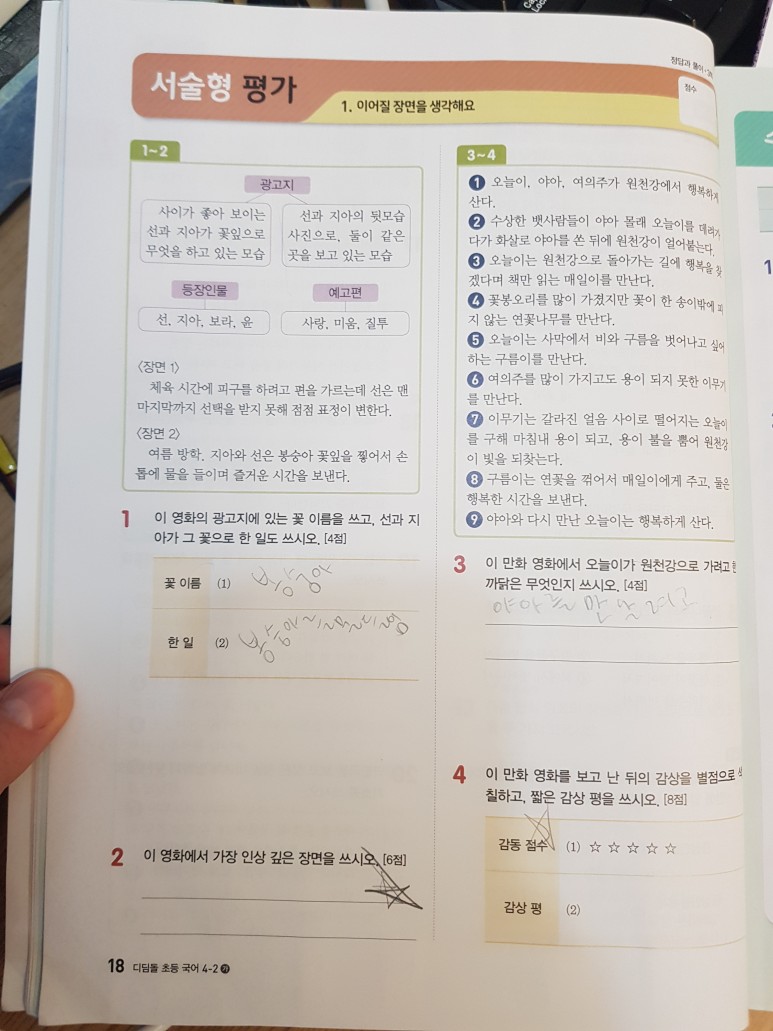 정답과 풀이
서술형 평가
1. 이어질 장면을 생각해요
점수
1~2
광고지
사이가 좋아 보이는
선과 지아가 꽃잎으로
무엇을 하고 있는 모습
선과 지아의 뒷모습
사진으로, 둘이 같은
곳을 보고 있는 모습
등장인물
예고편
선, 지아, 보라, 윤
사랑, 미움, 질투
〈장면 1〉
체육 시간에 피구를 하려고 편을 가르는데 선은 맨
마지막까지 선택을 받지 못해 점점 표정이 변한다.
〈장면 2〉
여름 방학, 지아와 선은 봉숭아 꽃잎을 찧어서 손
톱에 물을 들이며 즐거운 시간을 보낸다.
1 이 영화의 광고지에 있는 꽃 이름을 쓰고, 선과 지
아가 그 꽃으로 한 일도 쓰시오. [4점]
꽃 이름 (1)
한 일 (2)
2 이 영화에서 가장 인상 깊은 장면을 쓰시오. [6점]
18 디딤돌 초등 국어 4-2 ㉮
3~4
1 오늘이, 야아, 여의주가 원천강에서 행복하게
산다.
2 수상한 뱃사람들이 야아 몰래 오늘이를 데려가
다가 화살로 야아를 쏜 뒤에 원천강이 얼어붙는다.
3 오늘이는 원천강으로 돌아가는 길에 행복을 찾
겠다며 책만 읽는 매일이를 만난다.
4 꽃봉오리를 많이 가졌지만 꽃이 한 송이밖에 피
지 않는 연꽃나무를 만난다.
5 오늘이는 사막에서 비와 구름을 벗어나고 싶어
하는 구름이를 만난다.
6 여의주를 많이 가지고도 용이 되지 못한 이무기
를 만난다.
7 이무기는 갈라진 얼음 사이로 떨어지는 오늘이
를 구해 마침내 용이 되고, 용이 불을 뿜어 원천강
이 빛을 되찾는다.
8 구름이는 연꽃을 꺾어서 매일이에게 주고, 둘은
행복한 시간을 보낸다.
9 야아와 다시 만난 오늘이는 행복하게 산다.
3 이 만화 영화에서 오늘이가 원천강으로 가려고 한
까닭은 무엇인지 쓰시오. [4점]
야아를 만날려고
4 이 만화 영화를 보고 난 뒤의 감상을 별점으로 색
칠하고, 짧은 감상 평을 쓰시오. [8점]
감동 점수 (1) ☆ ☆ ☆ ☆ ☆
감상 평 (2)